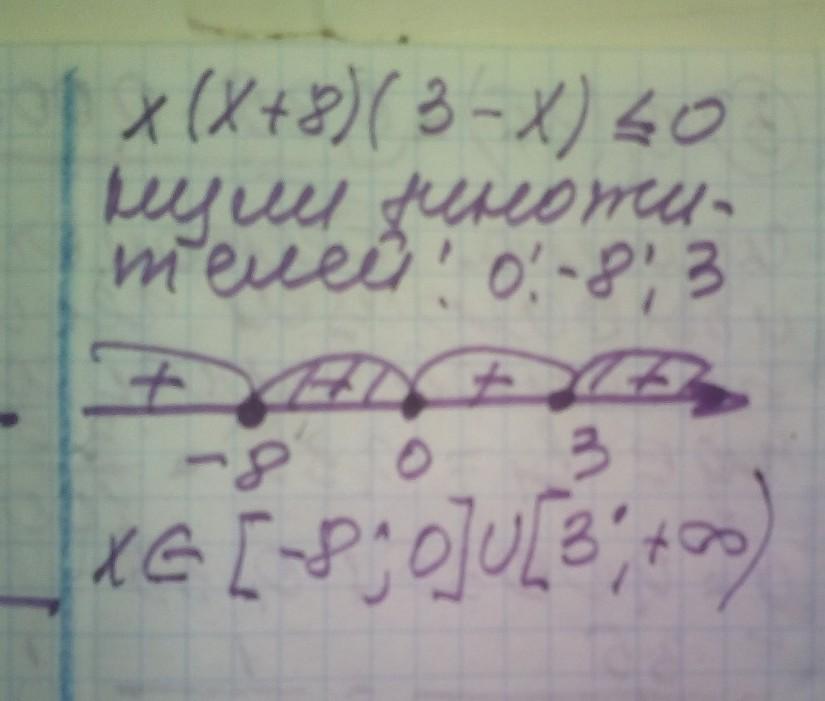 x(x+8)(3-x)≤0
нули множи-
телей: 0; -8; 3
+ + + +
-8 0 3
x∈[-8;0]∪[3;+∞)